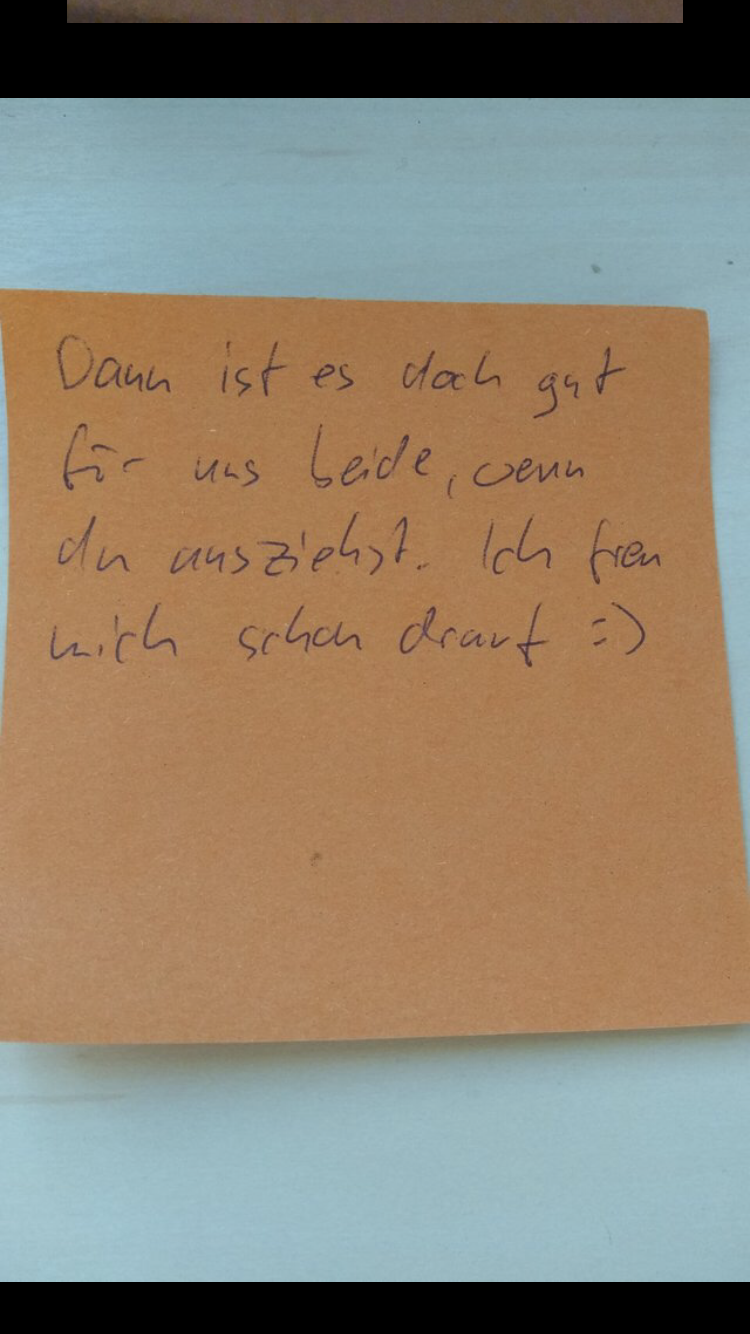 Dann ist es doch gut
für uns beide, wenn
du ausziehst. Ich freu
mich schon drauf =)